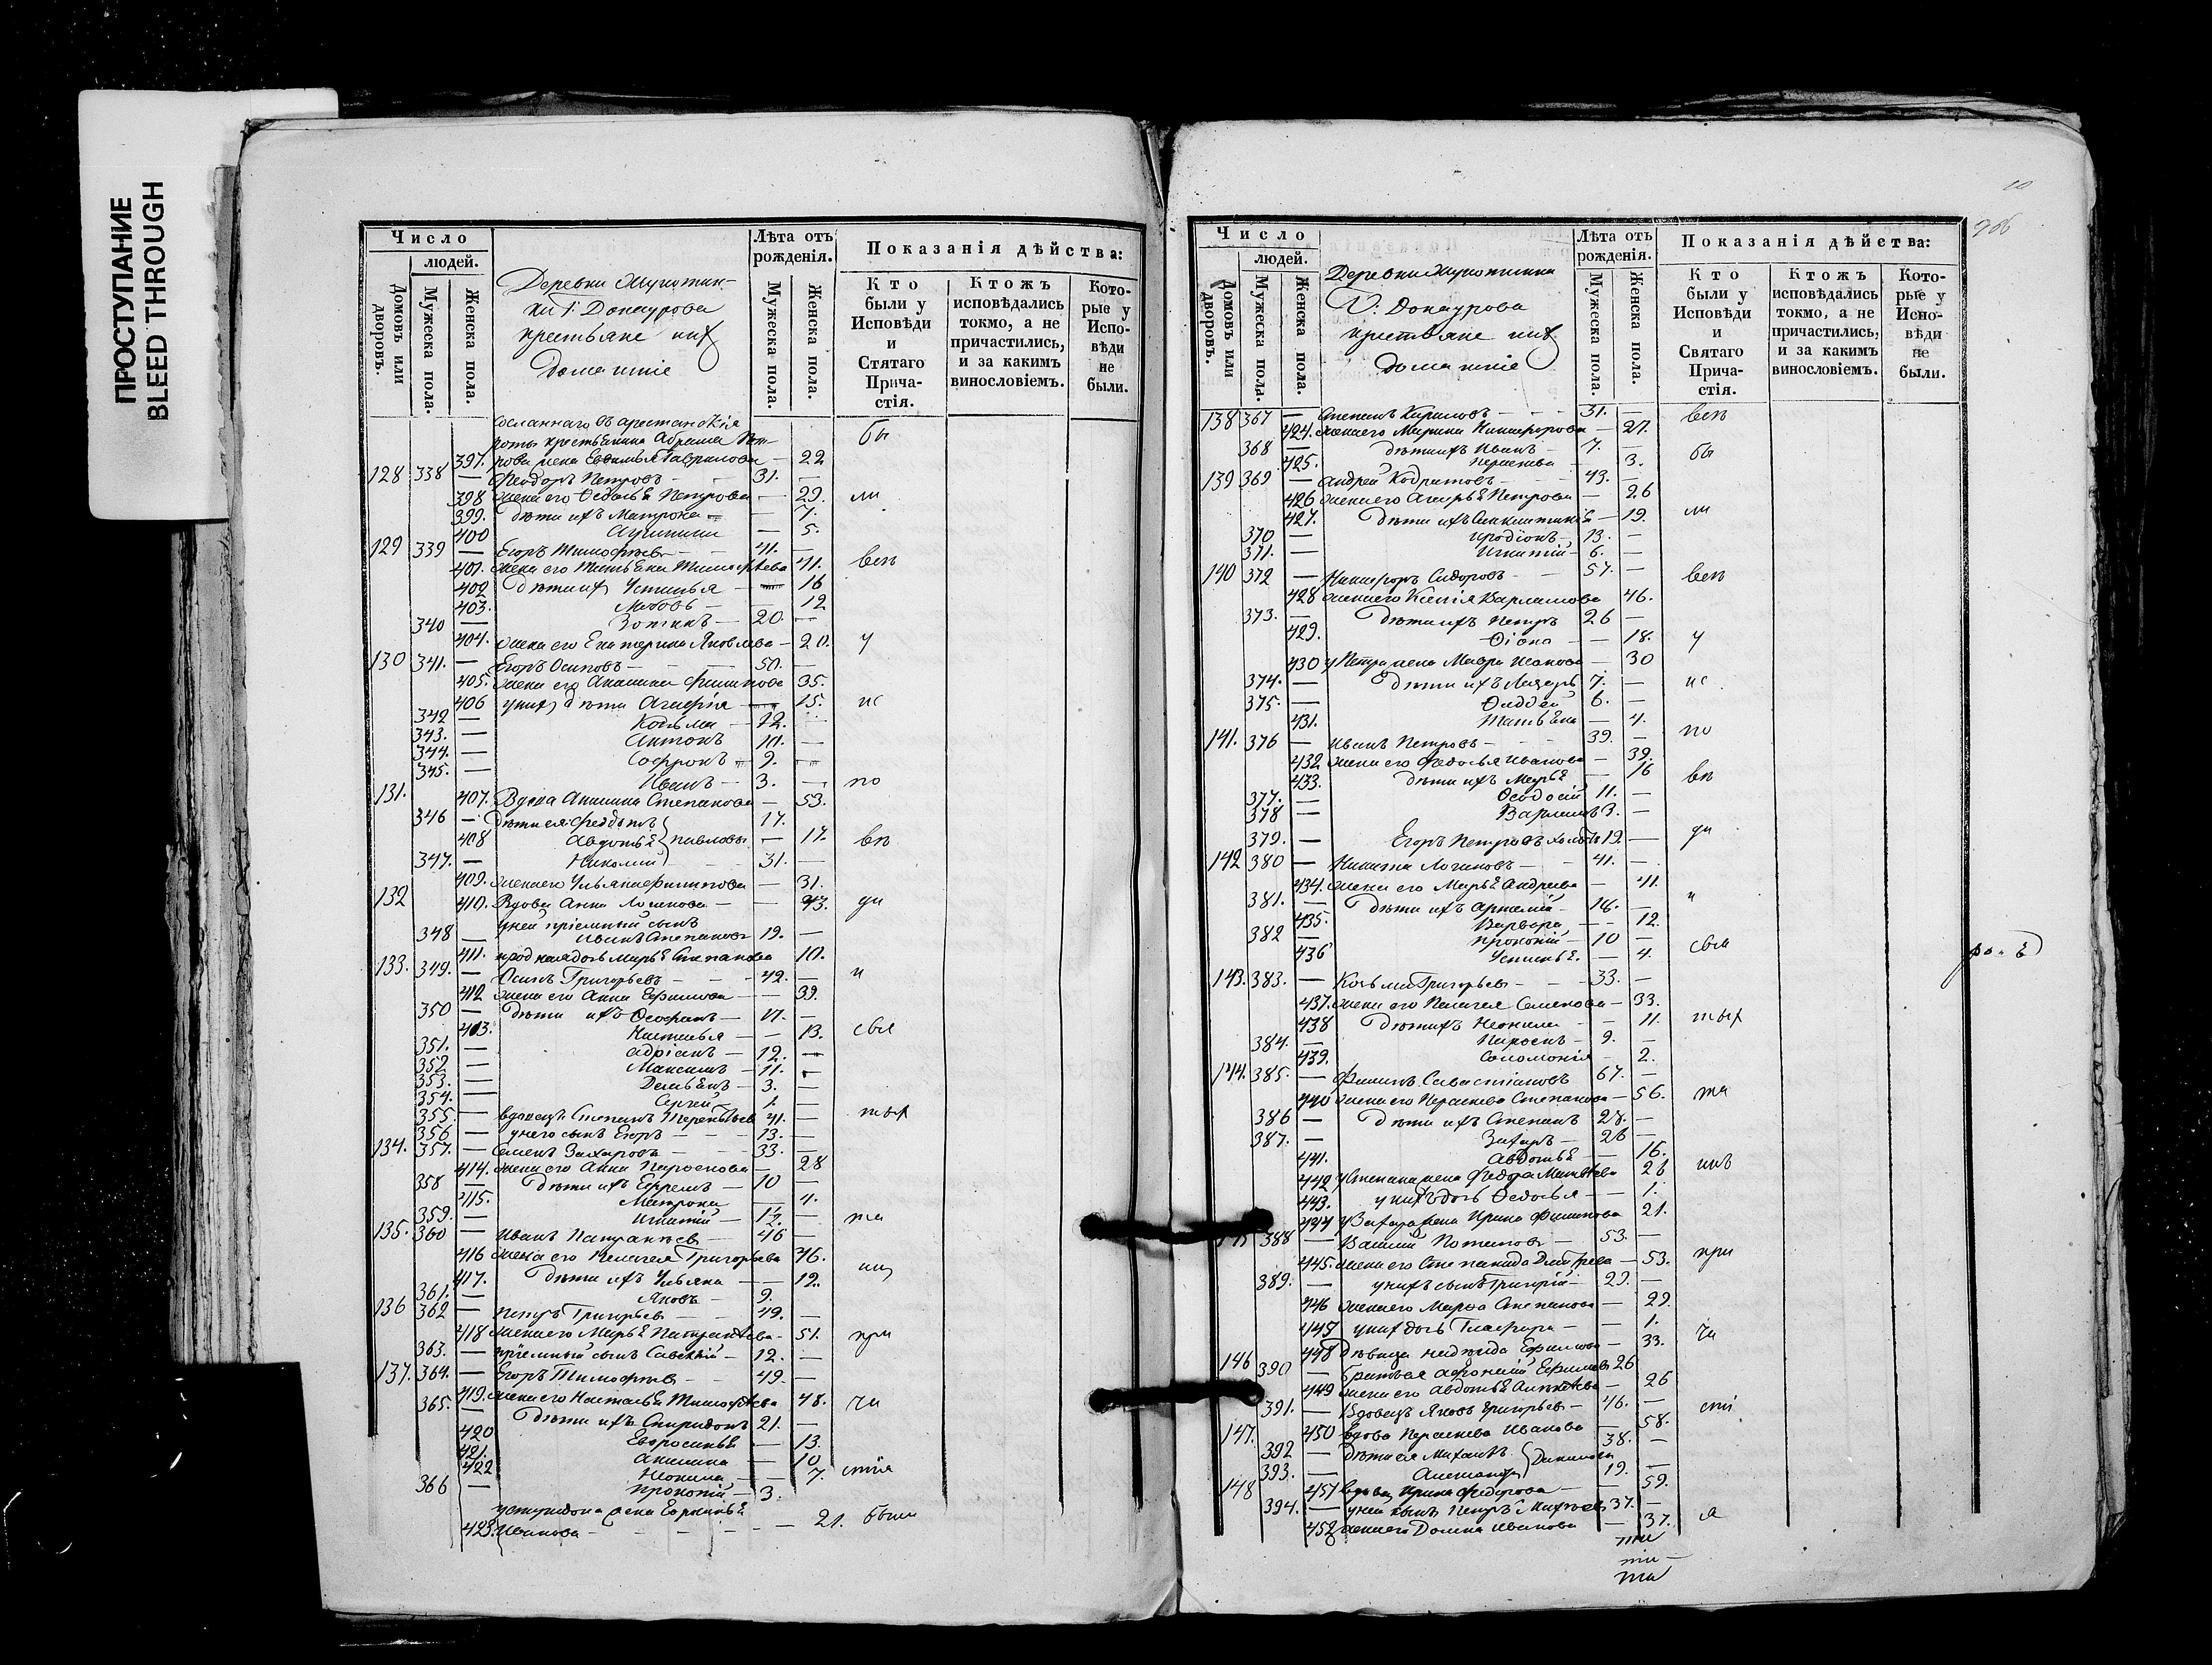 ПРОСТУПАНИЕ
BLEED THROUGH
Число
людей.
Домовъ или дворовъ.
Мужеска пола.
Женска пола.
Деревни
Г. Донаурова
крестьяне ихъ
домашніе
Лѣта отъ рожденія.
Мужеска пола.
Женска пола.
Показанія дѣйства:
Кто были у Исповѣди и Стятаго Прича-стія.
Ктожъ исповѣдались токмо, а не причастились, и за какимъ винословіемъ.
Кото-рые у Испо-вѣди не были.
сосланнаго въ арестанскія бы
роты крестьянина Абрама Пет-
397. рова жена Евдокья Гаврилова — 22
128 338 — Феодоръ Петровъ 31. —
398 жена его Федосья Петрова — 29. ли
399. дѣти ихъ Матрона — 7.
400 — 5.
129 339 — Егоръ Тимофѣевъ 41. —
401. жена его Татьяна Тимофѣева 41. всѣ
402 дѣти ихъ Устинья — 16
403. Любовь — 12
340 — Зотикъ — 20. —
404. жена его Екатерина Яковлева — 20. у
130 341. — Егоръ Осиповъ — 50. —
405. жена его Акилина Филипова 35.
406 у нихъ дѣти Агафія 15. ис
342 — Козьма — 12.
343. — Антонъ 10. —
344. — Софронъ 9. —
345. — Иванъ — 3. — по
131. 407. Вдова Акилина Степанова — 53.
346 — дѣти ея Феддѣй 17.
408 Авдотья Павловы — 17. вѣ
347. — Николай 31. —
409. жена его Ульяна Филипова — 31.
132 410. Вдова Анна Логинова — 43. ди
у ней пріемный сынъ
348 — Иванъ Степановъ 19. —
411. родная дочь Марья Степанова 10.
133. 349. — Осипъ Григорьевъ — 42. — и
412 жена его Анна Ефимова — 39.
350 — дѣти ихъ Феофанъ — 17. —
413. Настасья — 13. свя
351. — Адріанъ — 12. —
352 — Максимъ — 11. —
353. — Демьянъ — 3. —
354. — Сергей — 1. —
355. — вдовецъ Степанъ Терентьевъ 41. — тыхъ
356 — у него сынъ Егоръ — 13. —
134. 357. — Семенъ Захаровъ — 33. —
414. жена его Анна Парфенова — 28
358 — дѣти ихъ Ефремъ — 10 —
415. Матрона — 4.
359. — Игнатій — 1/2. — та
135. 360 — Иванъ Патракѣевъ — 46 —
416 жена его Пелагея Григорьева 46.
417. дѣти ихъ Ульяна — 12. инъ
361. — Яковъ — 9.
136 362 — Петръ Григорьевъ — 49. —
418 жена его Марья Патракѣева — 51. при
363. — пріемный сынъ Савелій — 12. —
137. 364. — Егоръ Тимофѣевъ — 49. —
419. жена его Настасья Тимофѣева 48. ча
365. — дѣти ихъ Спиридонъ 21. —
420 Евфросинья — 13.
421. Акилина — 10
422 Неонила — 7. стія
366 — Прокопій — 3.
у Спиридона жена
423. Иванова — 21. были
906
Число
людей.
Домовъ или дворовъ.
Мужеска пола.
Женска пола.
Деревни
Г. Донаурова
крестьяне ихъ
домашніе
Лѣта отъ рожденія.
Мужеска пола.
Женска пола.
Показанія дѣйства:
Кто были у Исповѣди и Святаго Прича-стія.
Ктожъ исповѣдались токмо, а не причастились, и за какимъ винословіемъ.
Кото-рые у Испо-вѣди не были.
138 367 — Степанъ Кириловъ — 31. — всѣ
424. жена его Марина Никифорова — 27.
368 — дѣти ихъ Иванъ — 7. — бы
425. Параскева — 3.
139 369 — Андрей Кодратовъ — 43. —
426 жена его Агафья Петрова — 26
427. дѣти ихъ — 19. ли
370 — Иродіонъ — 13. —
371. — Игнатій — 6. —
140 372 — Никифоръ Сидоровъ — 57. — всѣ
428 жена его Ксенія Варламова 46.
373. — дѣти ихъ Петръ 26 —
429. Фіона — 18. у
430 у Петра жена Мавра Иванова — 30
374. — дѣти ихъ Лазарь 7. — ис
375. — Фаддей 6. —
431. Татьяна — 4.
141. 376 — Иванъ Петровъ — 39. — по
432 жена его Федосья Иванова — 39.
433. дѣти ихъ Марья — 16 вѣ
377. — Феодосій 11. —
378 — Варламъ 3. —
379. — Егоръ Петровъ холостъ 19. — ди
142 380 — Никита Логиновъ — 41. —
434. жена его Марья Андреева — 41.
381. — дѣти ихъ Артемій — 18. — и
435. Варвара — 12.
382 — Прокопій — 10 —
436 Устинья. — 4. свя
143. 383. — Козьма Григорьевъ — 33. —
437. жена его Пелагея Семенова — 33.
438 дѣти ихъ Неонила — 11. тыхъ
384. — Парфенъ — 9. —
439. Соломонія — 2.
144. 385. — Филипъ Савастіановъ 67. —
440 жена его Параскева Степанова — 56. та
386 — дѣти ихъ Степанъ 28. —
387. — Захаръ — 26 —
441. Авдотья — 16.
442 у Степана жена Федора Матвѣева 26 инъ
443. у нихъ дочь Федосья — 1.
444 у Захара жена Ирина Филипова 21.
388 — Василій Потаповъ — 53. —
445. жена его Степанида Дмитрева — 53. при
389. — у нихъ сынъ Григорій — 29. —
446 жена его Марфа Степанова — 29.
447 у нихъ дочь Глафира — 1. ча
146 448 Дѣвица Надежда Ефимова 33.
390 — братъ ея Афонасій Ефимовъ 26
449 жена его Авдотья — 26
391. — Вдовецъ Яковъ Григорьевъ — 46. — сті
147. 450 вдова Параскева Иванова — 58.
392 — дѣти ея Михаилъ 38. —
393. — Александръ Даниловы 19. —
148 451 вдова Ирина Федорова — 59.
394. — у ней сынъ Петръ 37. —
452 жена его Домна Иванова — 37. я